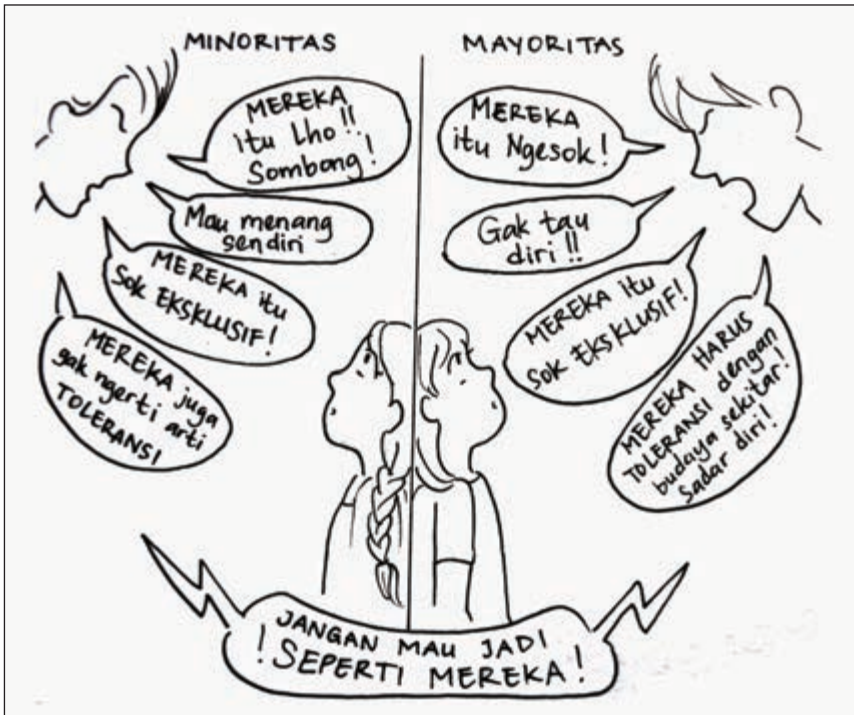 MINORITAS
MEREKA
itu Lho!!
Sombong!
Mau menang
sendiri
MEREKA itu
Sok EKSKLUSIF!
MEREKA juga
gak ngerti arti
TOLERANSI
MAYORITAS
MEREKA
itu Ngesok!
Gak tau
diri!!
MEREKA itu
Sok EKSKLUSIF!
MEREKA HARUS
TOLERANSI dengan
budaya sekitar!
Sadar diri!
JANGAN MAU JADI
! SEPERTI MEREKA!